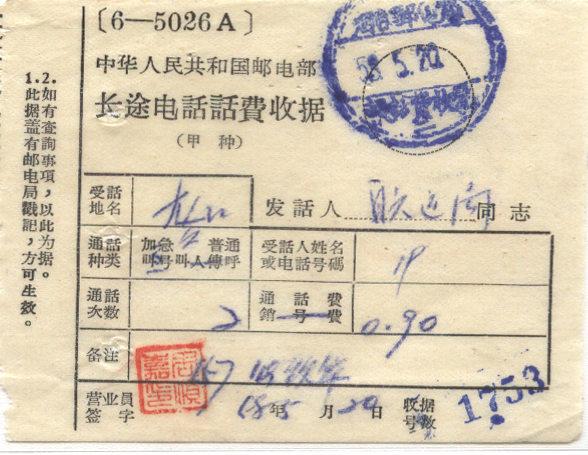 〔6—5026A〕
中华人民共和国邮电部
长途电话話費收据
（甲种）
58.5.20
1.此据盖有邮电局戳記，方可生效。
2.如有查詢事項，以此为据。
受話地名
发話人 同志
通話种类 加急 普通 叫号 叫人 傳呼
受話人姓名或电話号碼
通話次数 2
通話費 銷号費 0.90
备注
营业員签字 58年5月20日
收据号数 1753